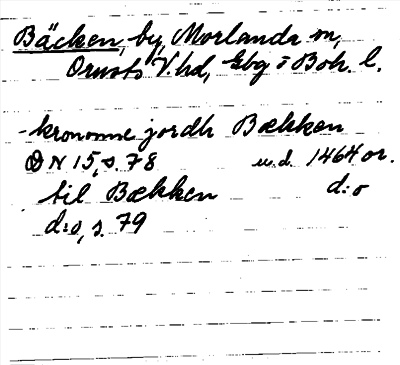 Bäcken, by, Morlanda sn,
Orusts V. hd, Gbg o Boh. l.
- kronomne jordh Bækken
DN 15, s. 78 u.d. 1464 or.
til Bækken d:o
d:o, s. 79